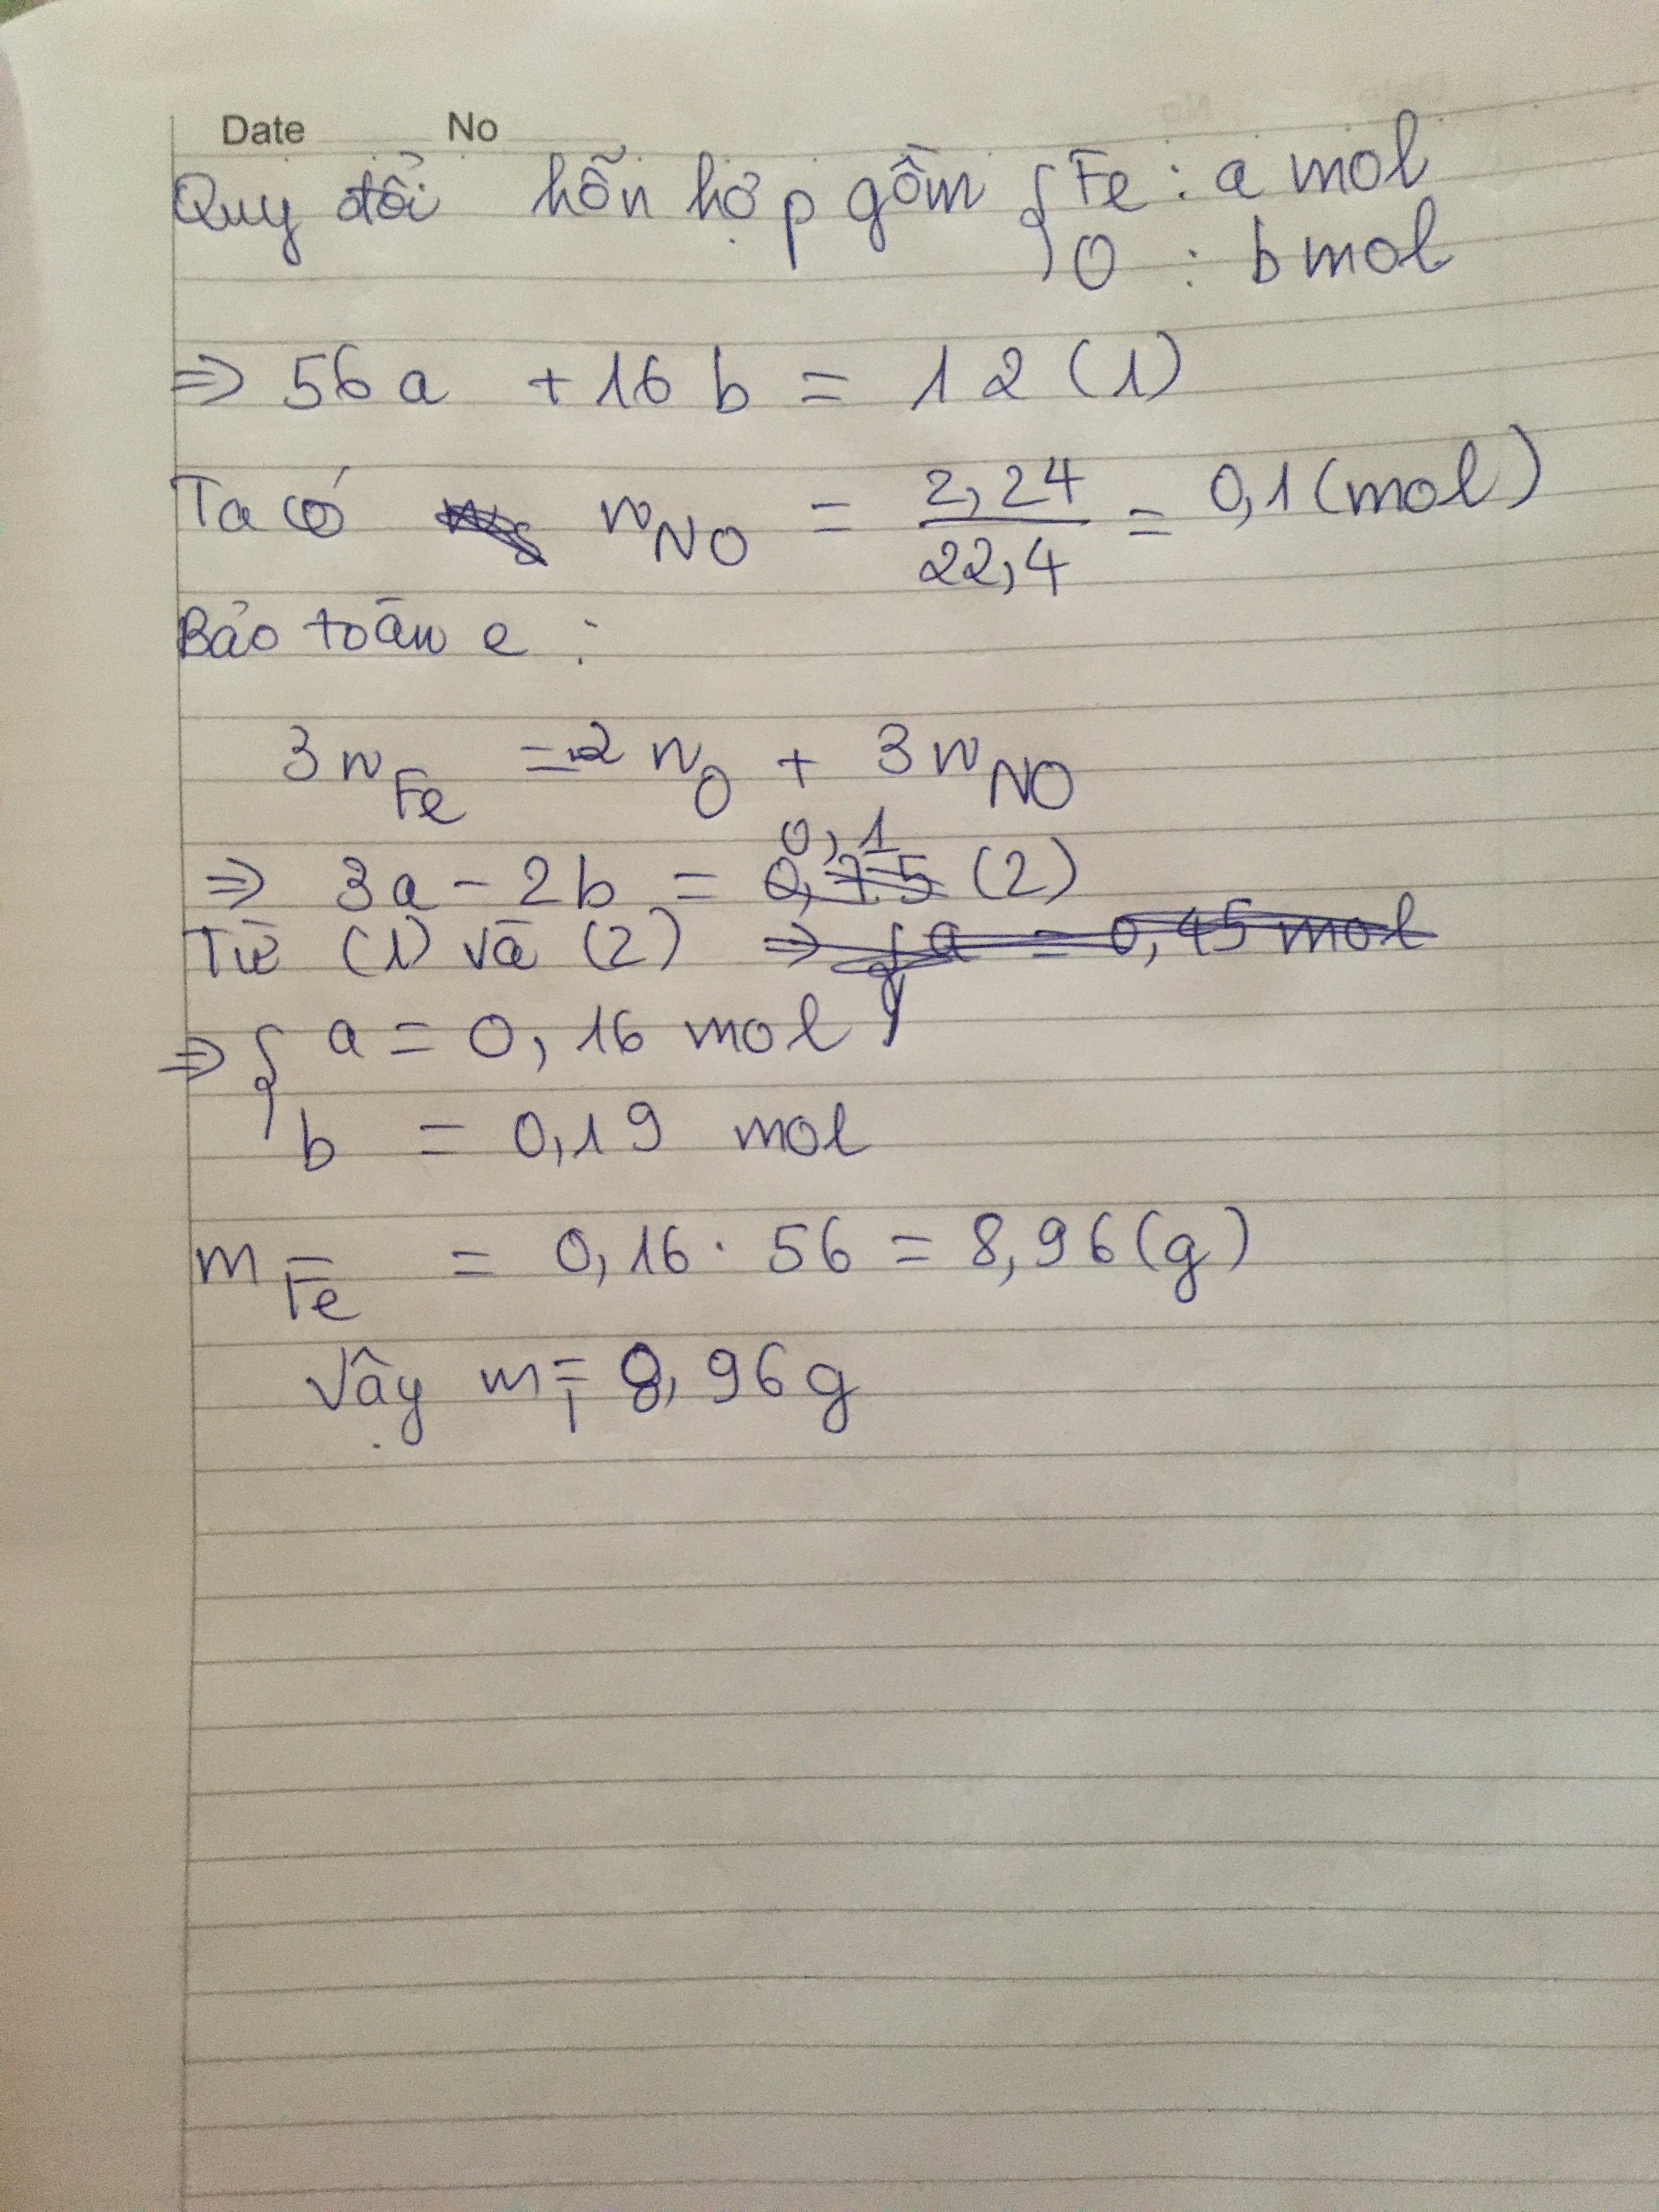 Date No
Quy đổi hỗn hợp gồm { Fe : a mol
O : b mol
⇒ 56a + 16b = 12 (1)
Ta có nNO = 2,24/22,4 = 0,1 (mol)
Bảo toàn e :
3nFe = 2nO + 3nNO
0,1
⇒ 3a - 2b = 0,75 (2)
Từ (1) và (2) ⇒ { a = 0,45 mol
⇒ { a = 0,16 mol
b = 0,19 mol
mFe = 0,16 . 56 = 8,96 (g)
Vậy m = 8,96g